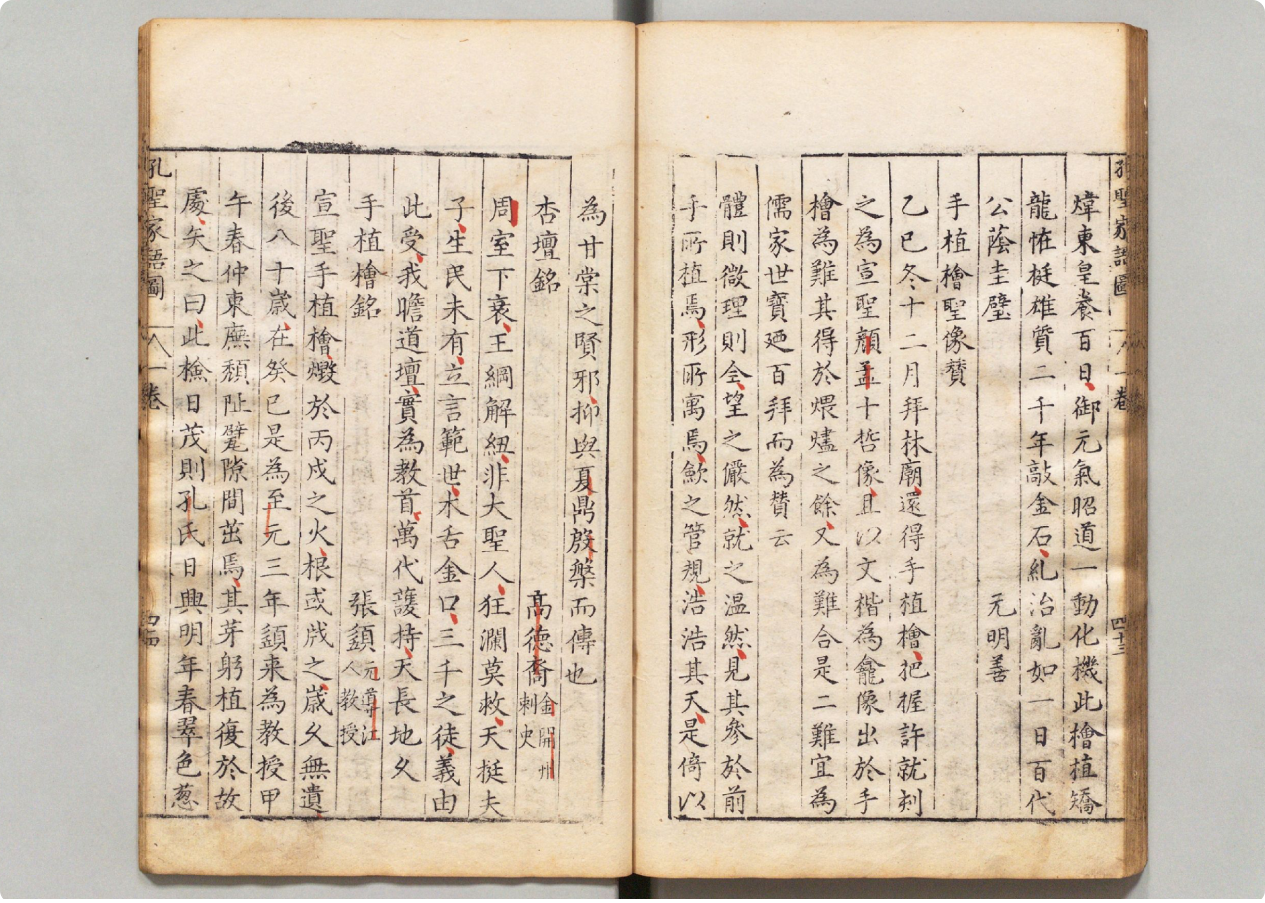 煒東皇養百日御元氣昭道一動化機此檜植矯
龍恠梃雄質二千年敲金石糺治亂如一日百代
公蔭圭璧
元明善
手植檜聖像賛
乙巳冬十二月拜林廟還得手植檜把握許就刻
之為宣聖顏孟十哲像且以文楷為龕像出於手
檜為難其得於煨燼之餘又為難合是二難宜為
儒家世寶廼百拜而為賛云
體則微理則全望之儼然就之温然見其參於前
手所植焉形所寓焉歟之管窺浩浩其天是倚以
孔聖家語圖
卷一
四十三
為甘棠之賢邪抑與夏鼎放槃而傳也
杏壇銘
高德裔金開州刺史
周室下衰王綱解紐非大聖人狂瀾莫救天挺夫
子生民未有立言範世木舌金口三千之徒義由
此受我瞻道壇實為教首萬代護持天長地久
手植檜銘
張頯元導江人教授
宣聖手植檜燬於丙戌之火根或戕之歲久無遺
後八十歲在癸巳是為至元三年頯來為教授甲
午春仲東廡頹阯甓隙間茁焉其芽躬植復於故
處矢之曰此檜日茂則孔氏日興明年春翠色葱
孔聖家語圖
卷一
四十四